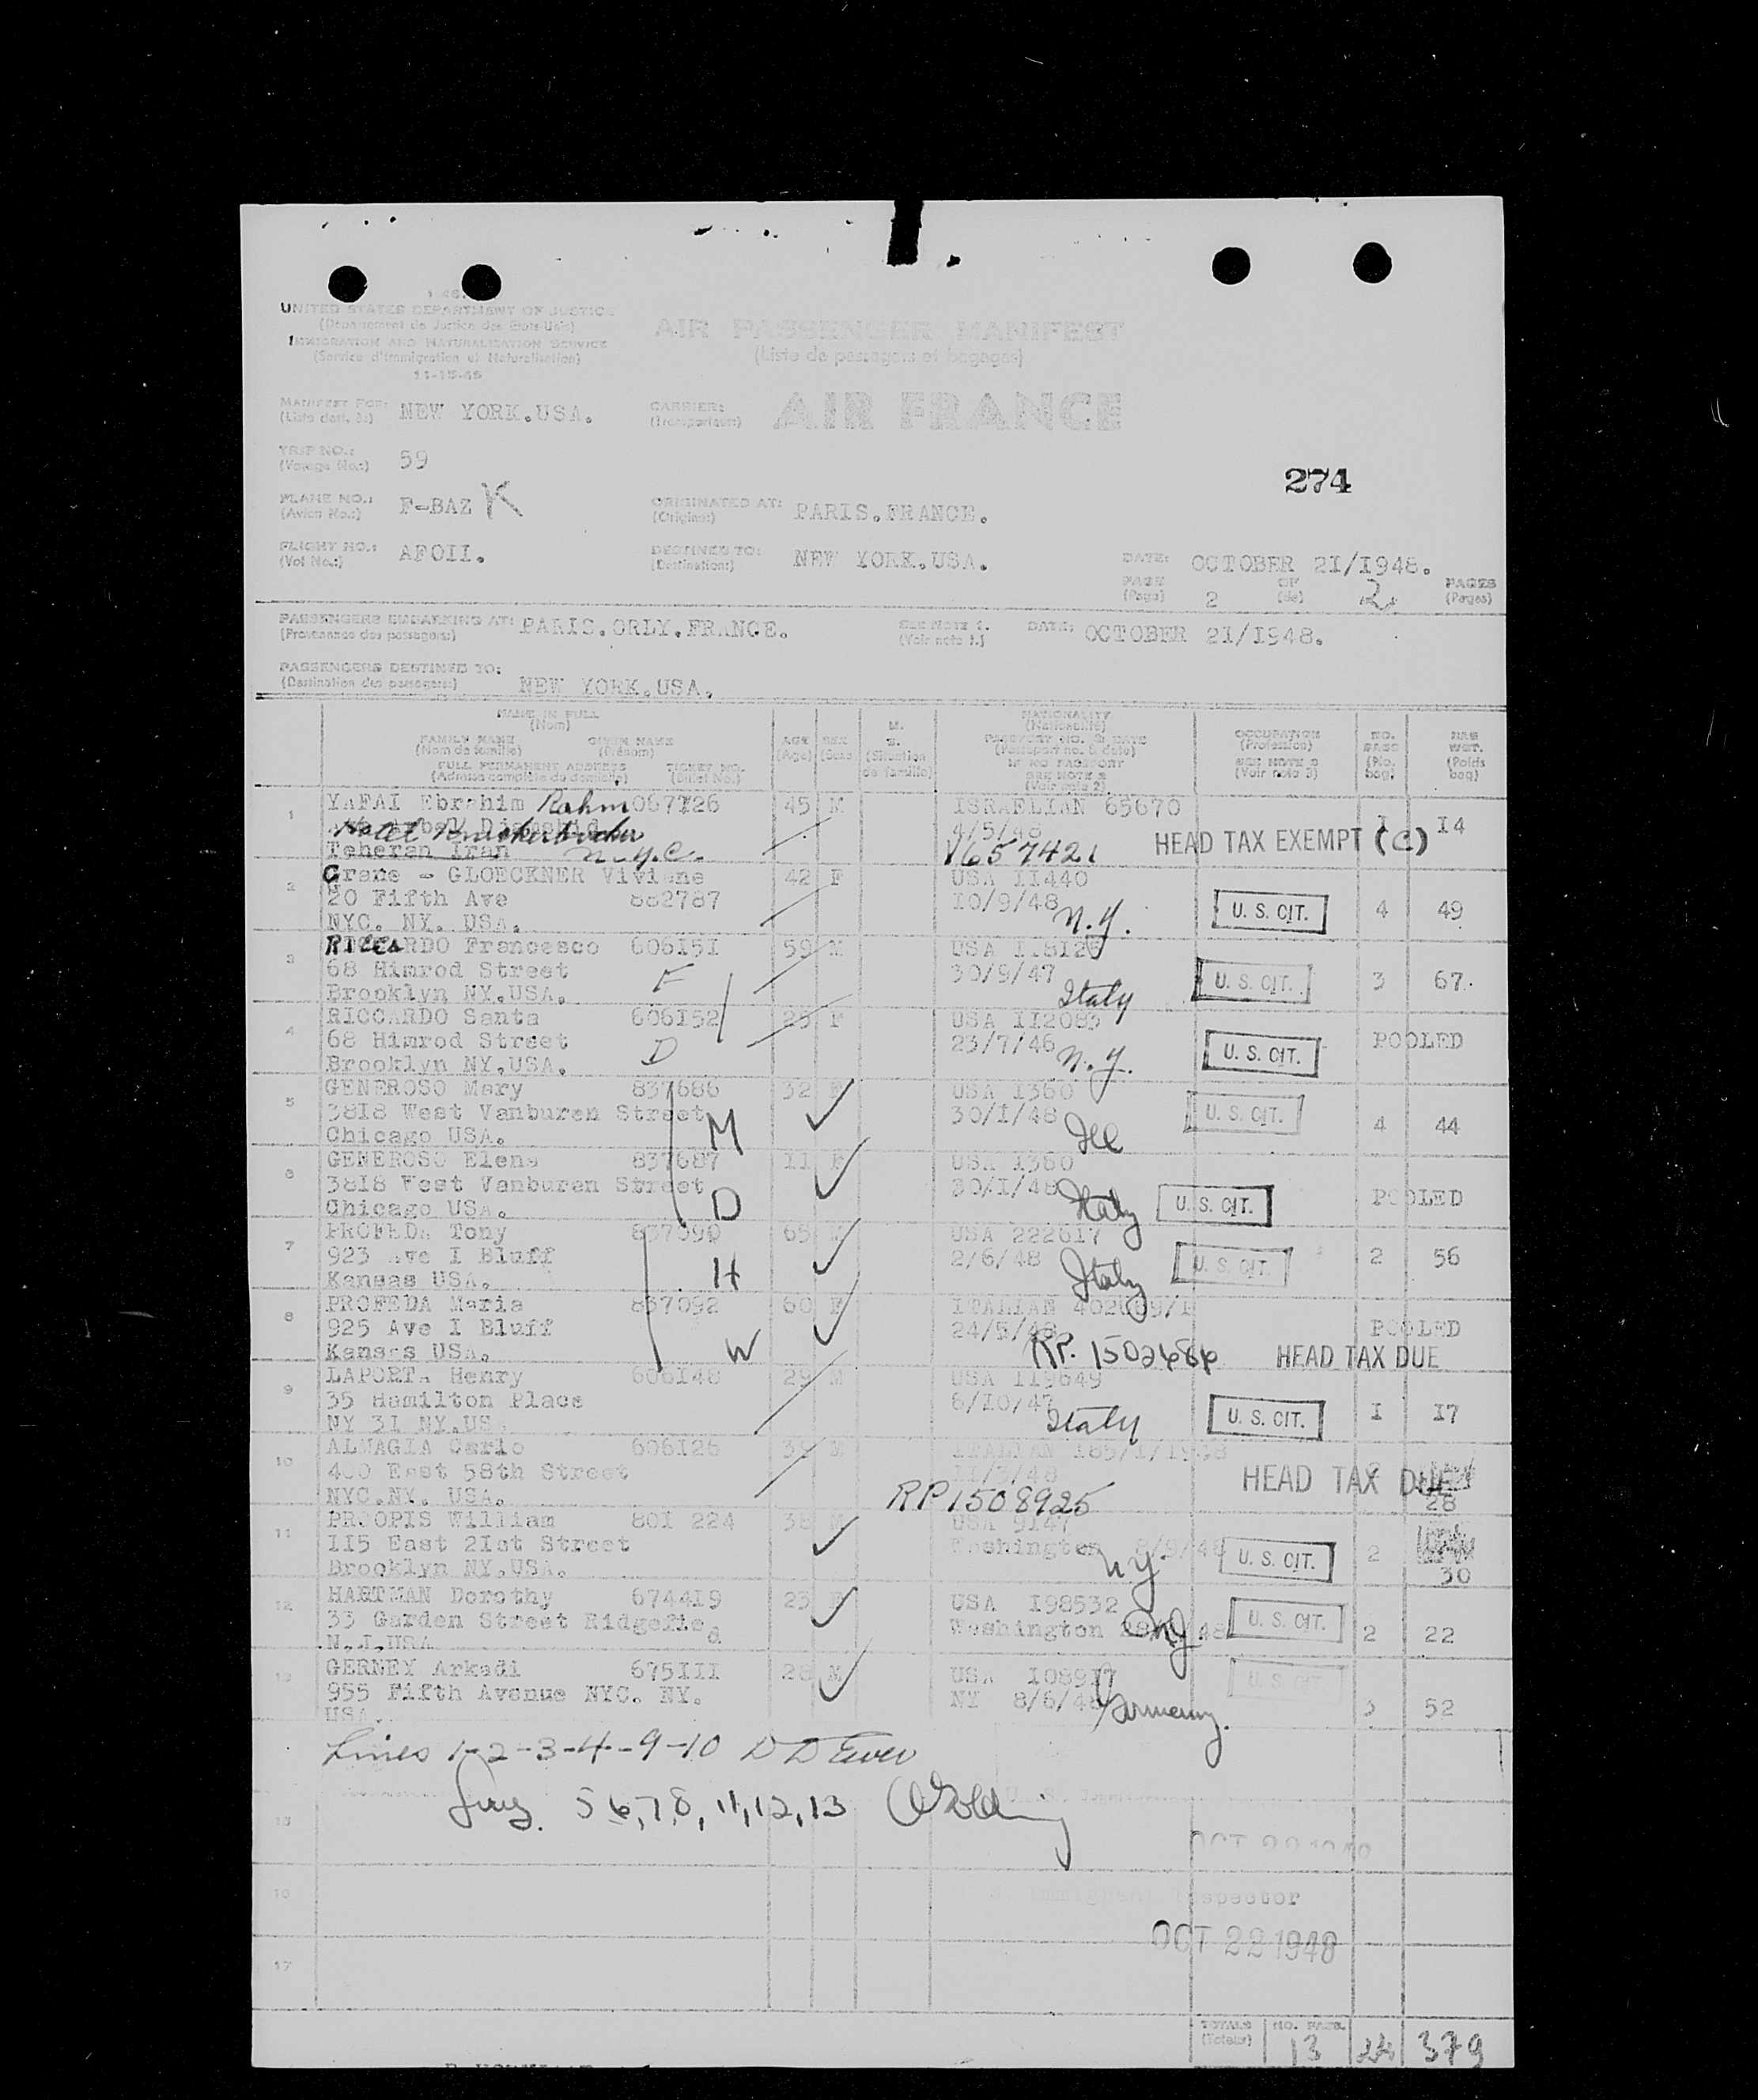 UNITED STATES DEPARTMENT OF JUSTICE
(Département de Justice des Etats-Unis)
IMMIGRATION AND NATURALIZATION SERVICE
(Service d'Immigration et Naturalisation)
11-15-45
AIR PASSENGER MANIFEST
(Liste de passagers et bagages)
MANIFEST FOR: NEW YORK.USA.
CARRIER: AIR FRANCE
(Transporteur)
TRIP NO.: 59
(Voyage No.:)
274
PLANE NO.: F-BAZ K
(Avion No.:)
ORIGINATED AT: PARIS.FRANCE.
(Origine:)
FLIGHT NO.: AFOII.
(Vol No.:)
DESTINED TO: NEW YORK.USA.
(Destination:)
DATE: OCTOBER 2I/I948.
PAGE 2 OF 2 PAGES
(Page) (de) (Pages)
PASSENGERS EMBARKING AT: PARIS.ORLY.FRANCE.
(Provenance des passagers:)
SEE NOTE 1.
(Voir note 1.)
DATE: OCTOBER 2I/I948.
PASSENGERS DESTINED TO: NEW YORK.USA.
(Destination des passagers:)
NAME IN FULL
(Nom)
FAMILY NAME GIVEN NAME
(Nom de famille) (Prénom)
FULL PERMANENT ADDRESS TICKET NO.
(Adresse complète du domicile) (Billet No.)
AGE
(Age)
SEX
(Sexe)
M.
S.
(Situation de famille)
NATIONALITY
(Nationalité)
PASSPORT NO. & DATE
(Passeport no. & date)
IF NO PASSPORT
SEE NOTE 2
(Voir note 2)
OCCUPATION
(Profession)
SEE NOTE 3
(Voir note 3)
NO. BAGG
(No. bag)
BAG WGT.
(Poids bag)
1 YAFAI Ebrahim Rahm 067726 45 M ISRAELIAN 65670 I I4
Hotel Knickerbocker 4/5/48 HEAD TAX EXEMPT (C)
Teheran Iran N.Y.C. V657421
2 Crane - GLOECKNER Viviane 42 F USA II440
20 Fifth Ave 882787 I0/9/48 N.Y. U. S. CIT. 4 49
NYC. NY. USA.
3 RICCARDO Francesco 606I5I 59 M
68 Himrod Street F 30/9/47 U. S. CIT. 3 67.
Brooklyn NY.USA. Italy
4 RICCARDO Santa 606I52 25 F USA II2083
68 Himrod Street D 23/7/46 N.Y. U. S. CIT. POOLED
Brooklyn NY.USA.
5 GENEROSO Mary 837686 32 F USA I360
38I8 West Vanburen Street M 30/I/48 U. S. CIT. 4 44
Chicago USA. Ill
6 GENEROSO Elena 837687 II F USA I360
38I8 West Vanburen Street D 30/I/48 Italy U. S. CIT. POOLED
Chicago USA.
7 PROFEDA Tony 65 M USA 2226I7
923 Ave I Bluff H 2/6/48 Italy U. S. CIT. 2 56
Kansas USA.
8 PROFEDA Maria 837092 60 F ITALIAN
925 Ave I Bluff W 24/5/48 POOLED
Kansas USA. RP. 1502686 HEAD TAX DUE
9 LAPORTA Henry 606I48 29 M USA II9649
35 Hamilton Place 6/I0/47 Italy U. S. CIT. I I7
NY 3I NY.US
10 ALMAGIA Carlo 606I26 39 M ITALIAN
400 East 58th Street HEAD TAX DUE
NYC.NY. USA. RP1508925 28
11 PROOPIS William 80I 224 38 M USA 9I47
II5 East 2Ist Street Washington NY U. S. CIT. 2
Brooklyn NY.USA. 30
12 HARTMAN Dorothy 6744I9 23 F USA I98532
33 Garden Street Ridgefie d Washington NJ. U. S. CIT. 2 22
N.J.USA
GERNEY Arkadi 675III 28 M USA I089I7
955 Fifth Avenue NYC. NY. NY 8/6/48 Germany. U. S. CIT. 3 52
USA.
Lines 1-2-3-4-9-10
5 6, 7, 8, 11, 12, 13
15
OCT 22 1948
16
Inspector
OCT 22 1948
17
TOTALS NO. PASS.
(Totaux) 13 24 379